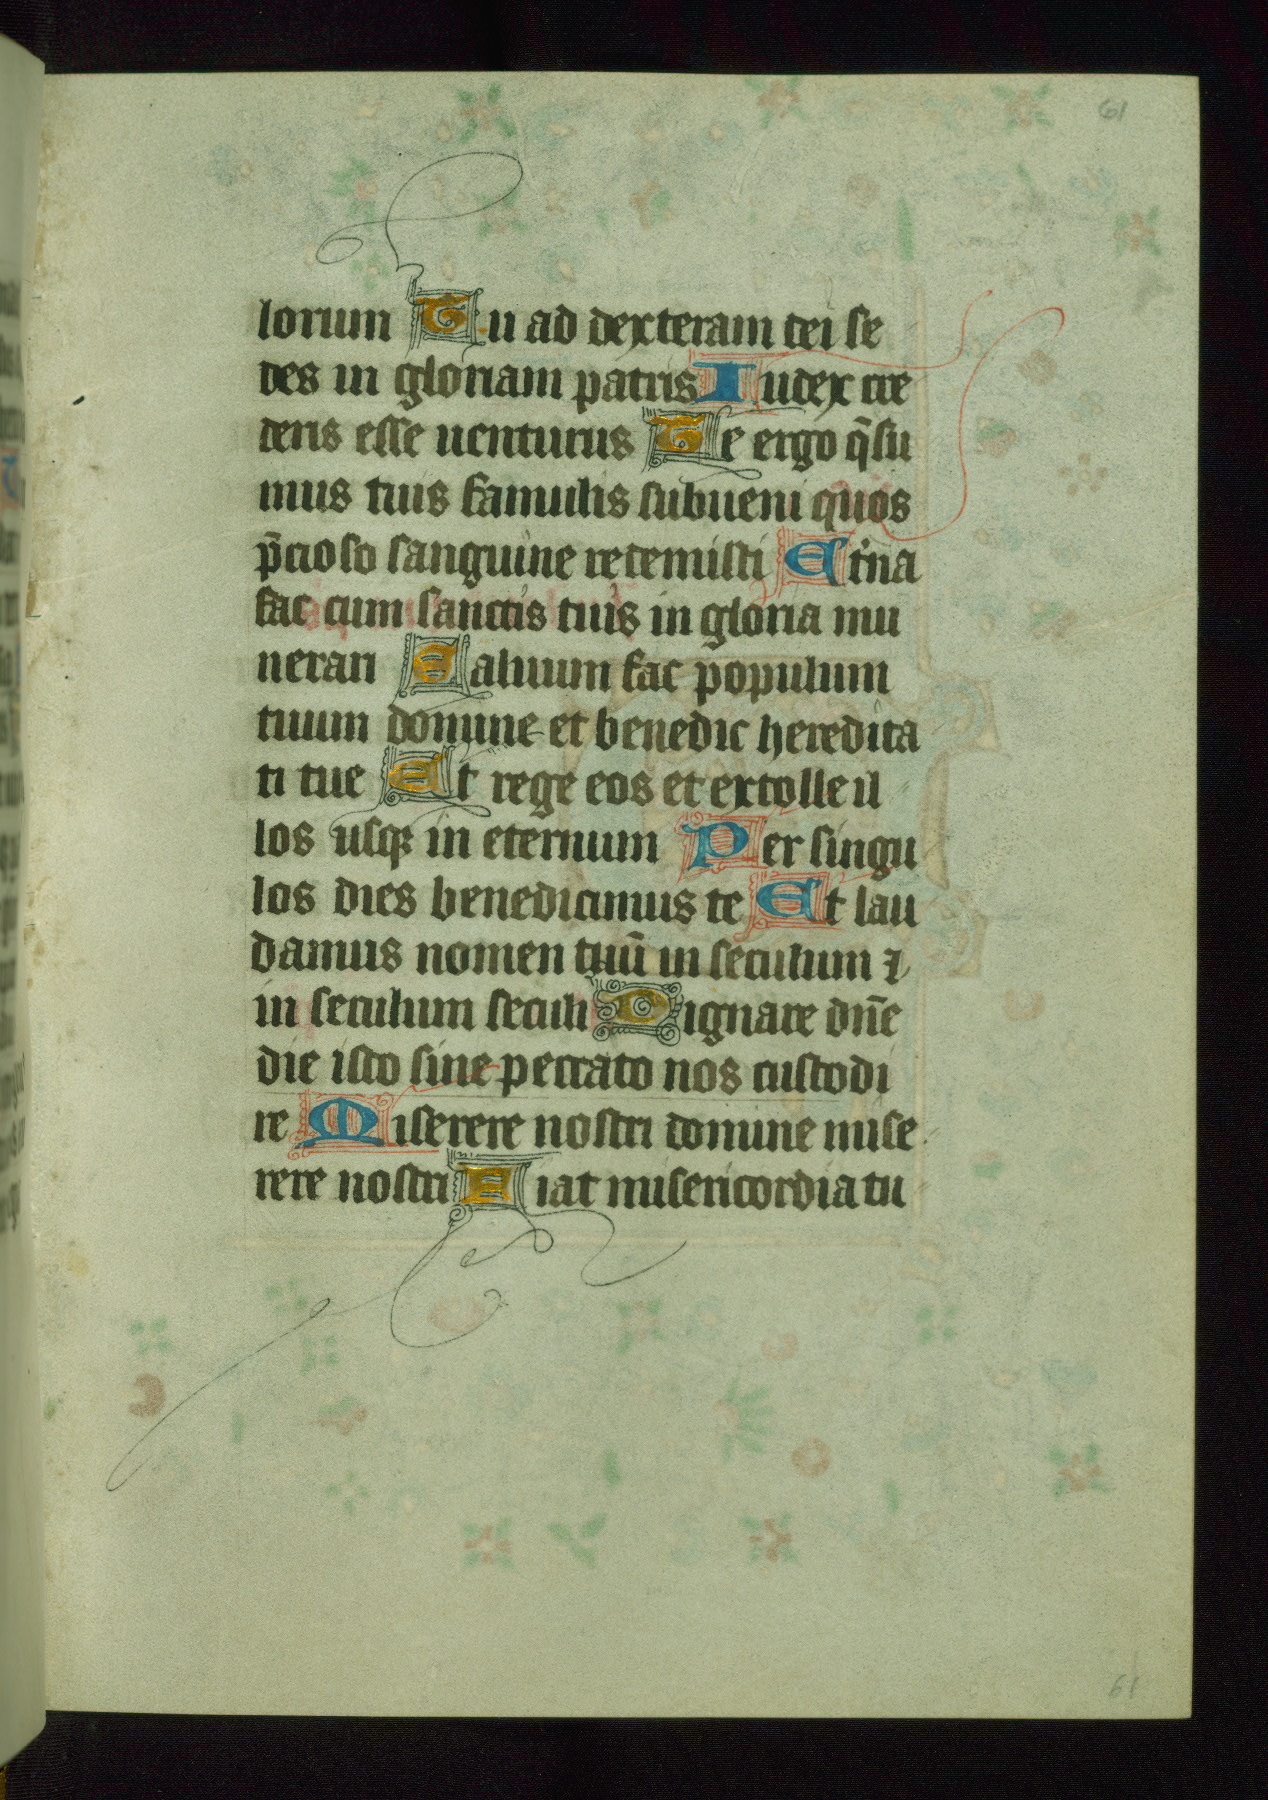 61
lorum Tu ad dexteram dei se
des in gloriam patris Iudex cre
deris esse uenturus Te ergo q̄su
mus tuis famulis subueni quos
p̄cioso sanguine redemisti Etͥna
fac cum sanctis tuis in gloria mu
nerari Saluum fac populum
tuum domine et benedic heredita
ti tue Et rege eos et extolle il
los usqꝫ in eternum Per singu
los dies benedicimus te Et lau
damus nomen tuū in seculum ⁊
in seculum seculi Dignare dn̄e
die isto sine peccato nos custodi
re Miserere nostri domine mise
rere nostri Fiat misericordia tu
61